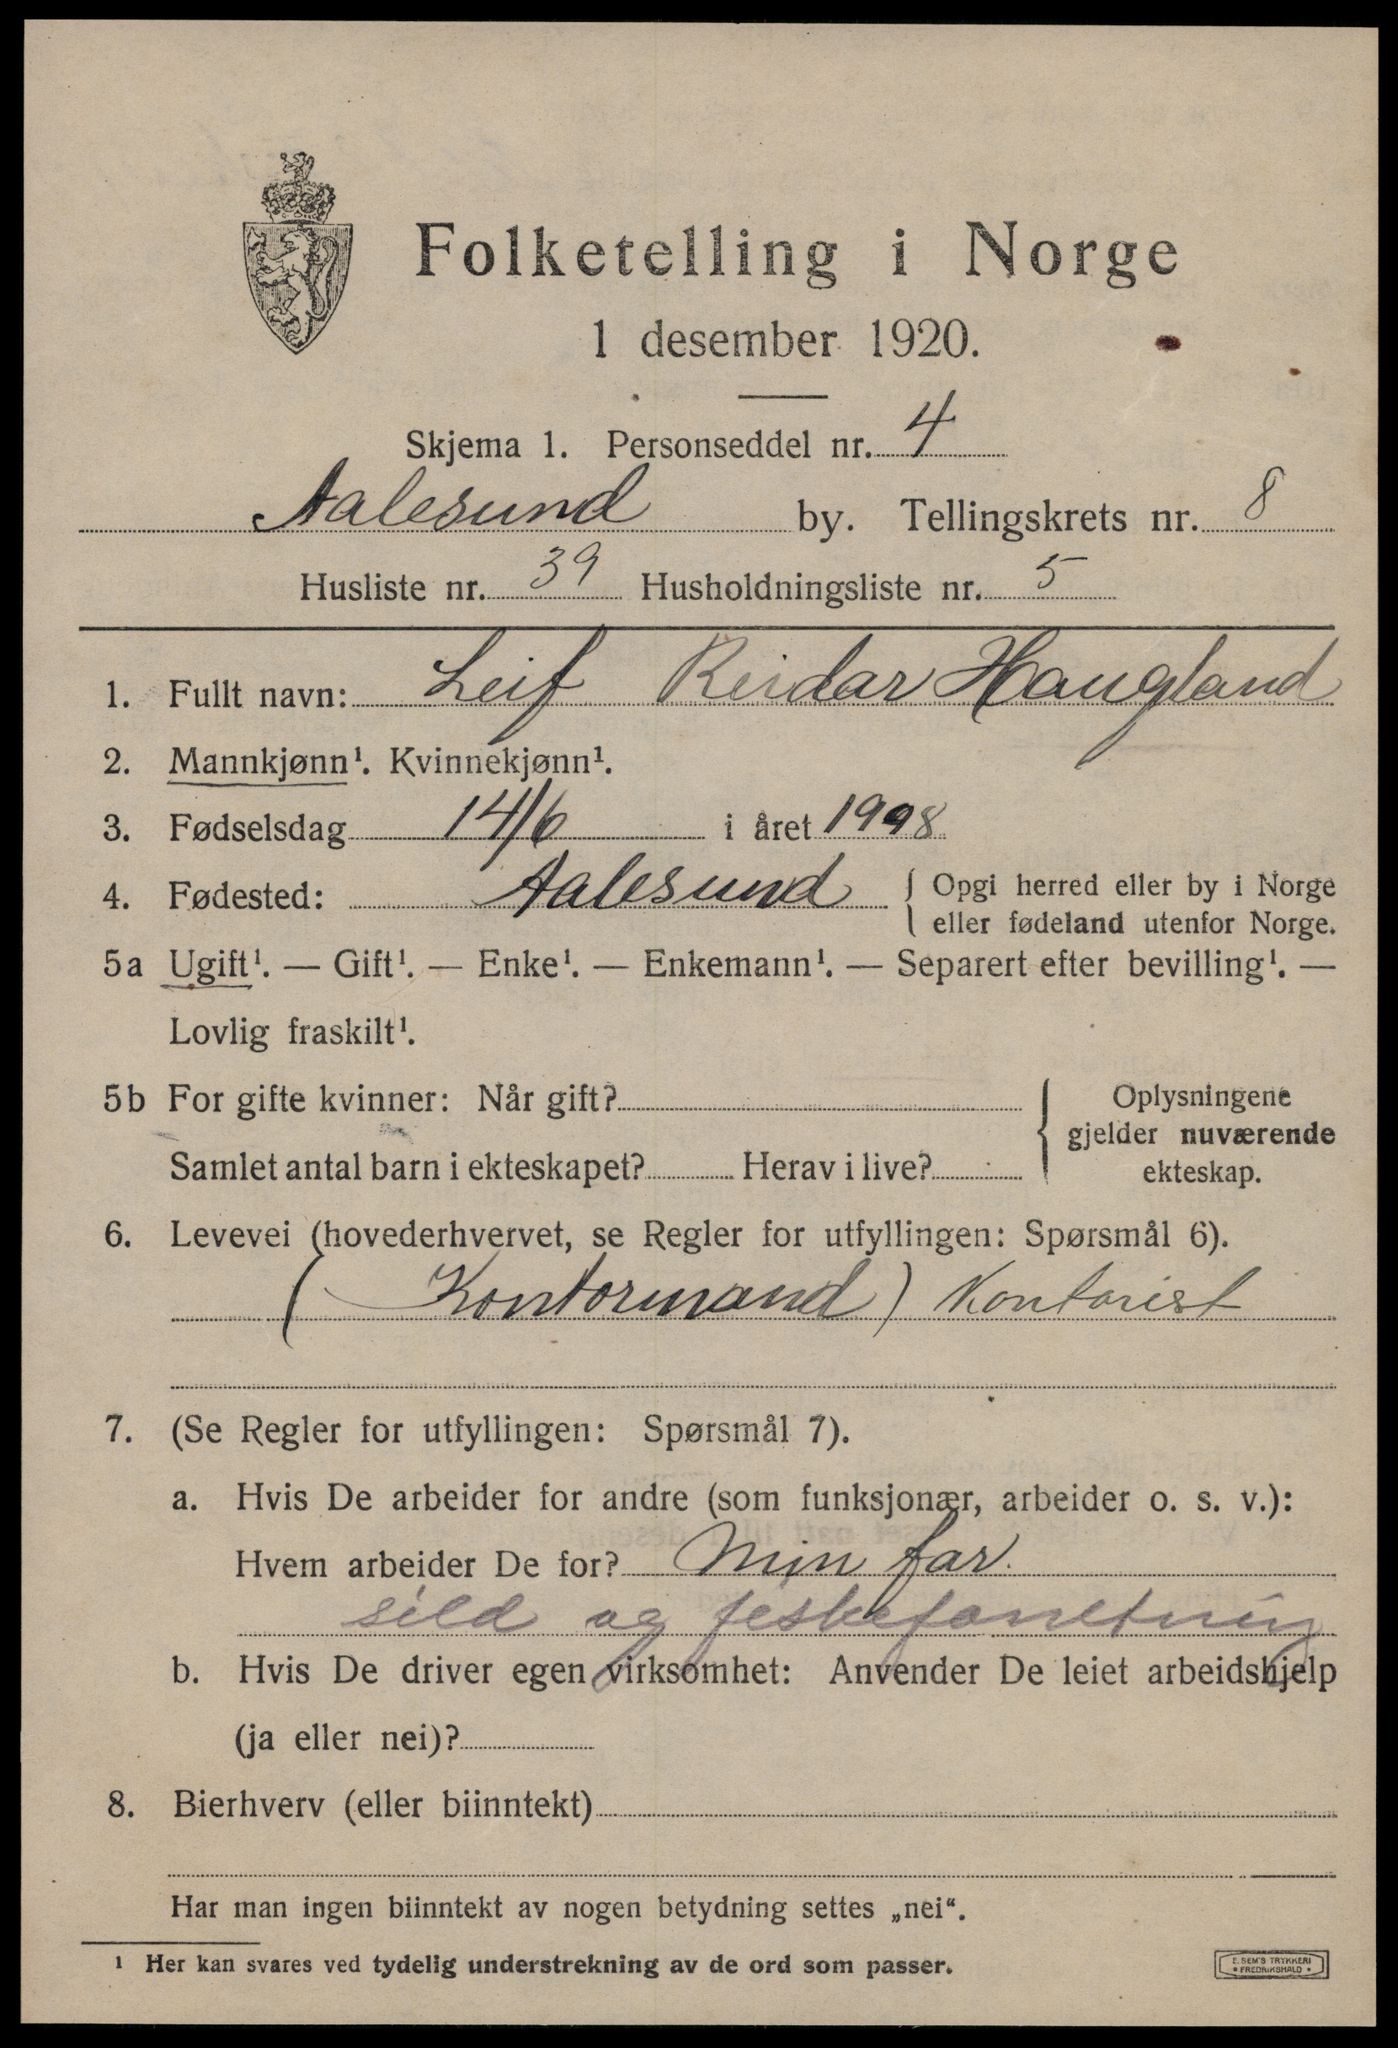 Folketelling i Norge
1 desember 1920.
Skjema 1. Personseddel nr. 4
Aalesund by. Tellingskrets nr. 8
Husliste nr. 39 Husholdningsliste nr. 5
1. Fullt navn: Leif Reidar Haugland
2. Mannkjønn¹. Kvinnekjønn¹.
3. Fødselsdag 14/6 i året 1998
4. Fødested: Aalesund { Opgi herred eller by i Norge
eller fødeland utenfor Norge.
5a Ugift¹. — Gift¹. — Enke¹. — Enkemann¹. — Separert efter bevilling¹. —
Lovlig fraskilt¹.
5b For gifte kvinner: Når gift? { Oplysningene
gjelder nuværende
Samlet antal barn i ekteskapet? Herav i live?
ekteskap.
6. Levevei (hovederhvervet, se Regler for utfyllingen: Spørsmål 6).
(Kontormand) Kontorist
7. (Se Regler for utfyllingen: Spørsmål 7).
a. Hvis De arbeider for andre (som funksjonær, arbeider o. s. v.):
Hvem arbeider De for? Min far.
sild og fiskeforretning
b. Hvis De driver egen virksomhet: Anvender De leiet arbeidshjelp
(ja eller nei)?
8. Bierhverv (eller biinntekt)
Har man ingen biinntekt av nogen betydning settes „nei“.
¹ Her kan svares ved tydelig understrekning av de ord som passer.
E. SEM'S TRYKKERI
• FREDRIKSHALD •